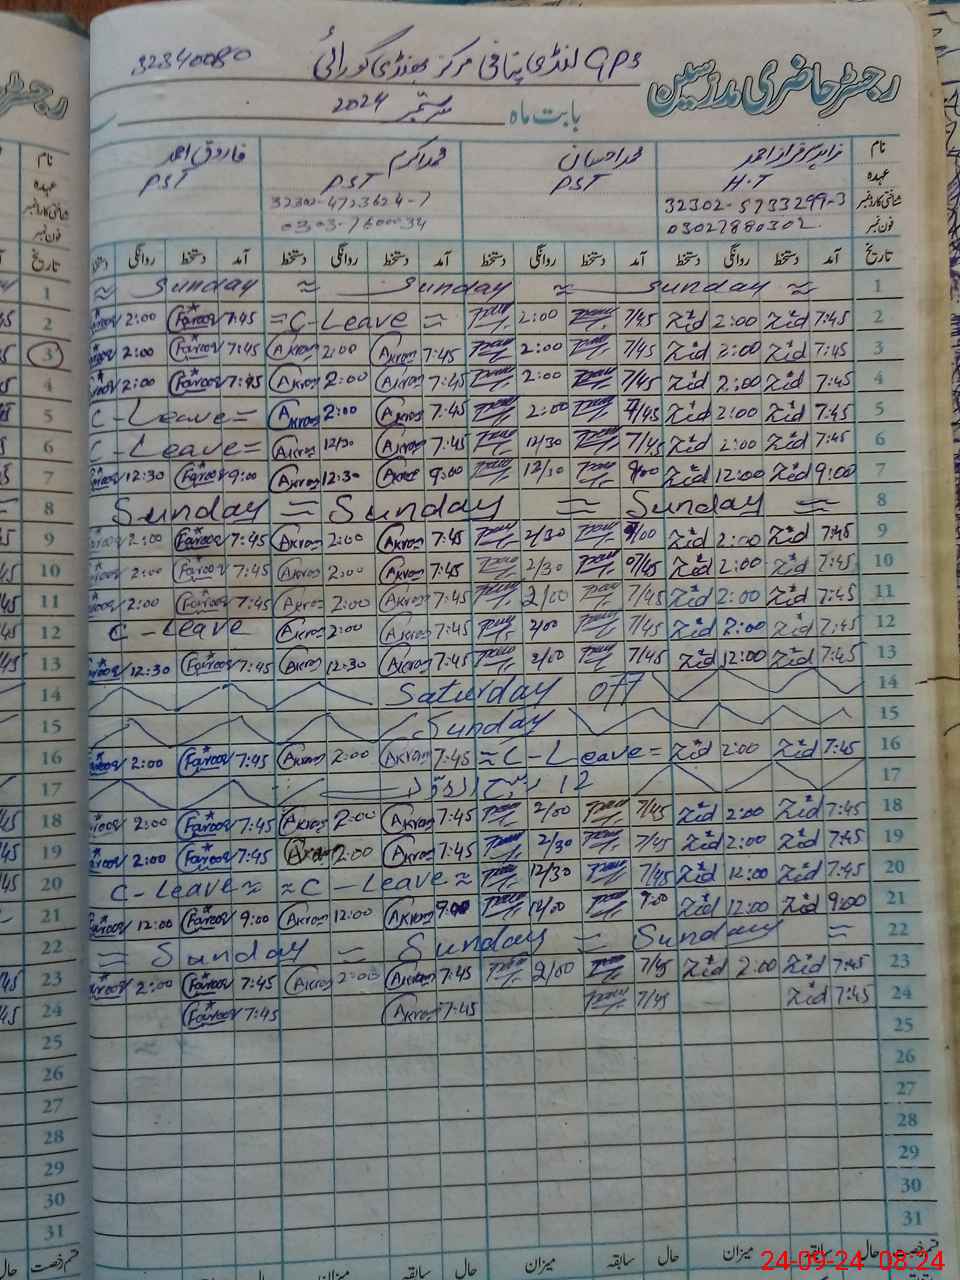 رجسٹر حاضری مدرسین
GPS لنڈی پتافی مرکز جھنڈی کورائی 32340080
بابت ماہ ستمبر 2024
نام زاہد سرفراز احمد محمد احسان محمد اکرم فاروق احمد
عہدہ H.T PST PST PST
شناختی کارڈ نمبر 32302-5733299-3 32302-4723624-7
فون نمبر 03027880302 0303-7600034
تاریخ آمد دستخط روانگی دستخط آمد دستخط روانگی دستخط آمد دستخط روانگی دستخط آمد دستخط روانگی دستخط
≈ Sunday ≈ Sunday ≈ Sunday ≈ 1
Farooq 2:00 Farooq 7:45 = C-Leave = 2:00 7/45 Zid 2:00 Zid 7:45 2
Farooq 2:00 Farooq 7:45 Akram 2:00 Akram 7:45 2:00 7/45 Zid 2:00 Zid 7:45 3
Farooq 2:00 Farooq 7:45 Akram 2:00 Akram 7:45 2:00 7/45 Zid 2:00 Zid 7:45 4
C-Leave = Akram 2:00 Akram 7:45 2:00 7/45 Zid 2:00 Zid 7:45 5
C-Leave = Akram 12/30 Akram 7:45 12/30 7/45 Zid 2:00 Zid 7:45 6
Farooq 12:30 Farooq 9:00 Akram 12:30 Akram 9:00 12/30 9/00 Zid 12:00 Zid 9:00 7
Sunday = Sunday = Sunday = 8
Farooq 2:00 Farooq 7:45 Akram 2:00 Akram 7:45 2/30 Zid 2:00 Zid 7:45 9
Farooq 2:00 Farooq 7:45 Akram 2:00 Akram 7:45 2/30 7/45 Zid 2:00 Zid 7:45 10
Farooq 2:00 Farooq 7:45 Akram 2:00 Akram 7:45 2/00 7/45 Zid 2:00 Zid 7:45 11
C-Leave Akram 2:00 Akram 7:45 2/00 7/45 Zid 2:00 Zid 7:45 12
Farooq 12:30 Farooq 7:45 Akram 12:30 Akram 7:45 2/00 7/45 Zid 12:00 Zid 7:45 13
Saturday off 14
Sunday 15
Farooq 2:00 Farooq 7:45 Akram 2:00 Akram 7:45 = C-Leave = Zid 2:00 Zid 7:45 16
12 ربیع الاول 17
Farooq 2:00 Farooq 7:45 Akram 2:00 Akram 7:45 2/00 7/45 Zid 2:00 Zid 7:45 18
Farooq 2:00 Farooq 7:45 Akram 2:00 Akram 7:45 2/30 7/45 Zid 2:00 Zid 7:45 19
C-Leave ≈ ≈ C-Leave ≈ 12/30 7/45 Zid 12:00 Zid 7:45 20
Farooq 12:00 Farooq 9:00 Akram 12:00 Akram 9:00 12/00 9:00 Zid 12:00 Zid 9:00 21
= Sunday = Sunday = Sunday = 22
Farooq 2:00 Farooq 7:45 Akram 2:00 Akram 7:45 2/00 7/45 Zid 2:00 Zid 7:45 23
Farooq 7:45 Akram 7:45 7/45 Zid 7:45 24
25
26
27
28
29
30
31
قسم رخصت حال سابقہ میزان حال سابقہ میزان حال سابقہ میزان حال
24-09-24 08:24